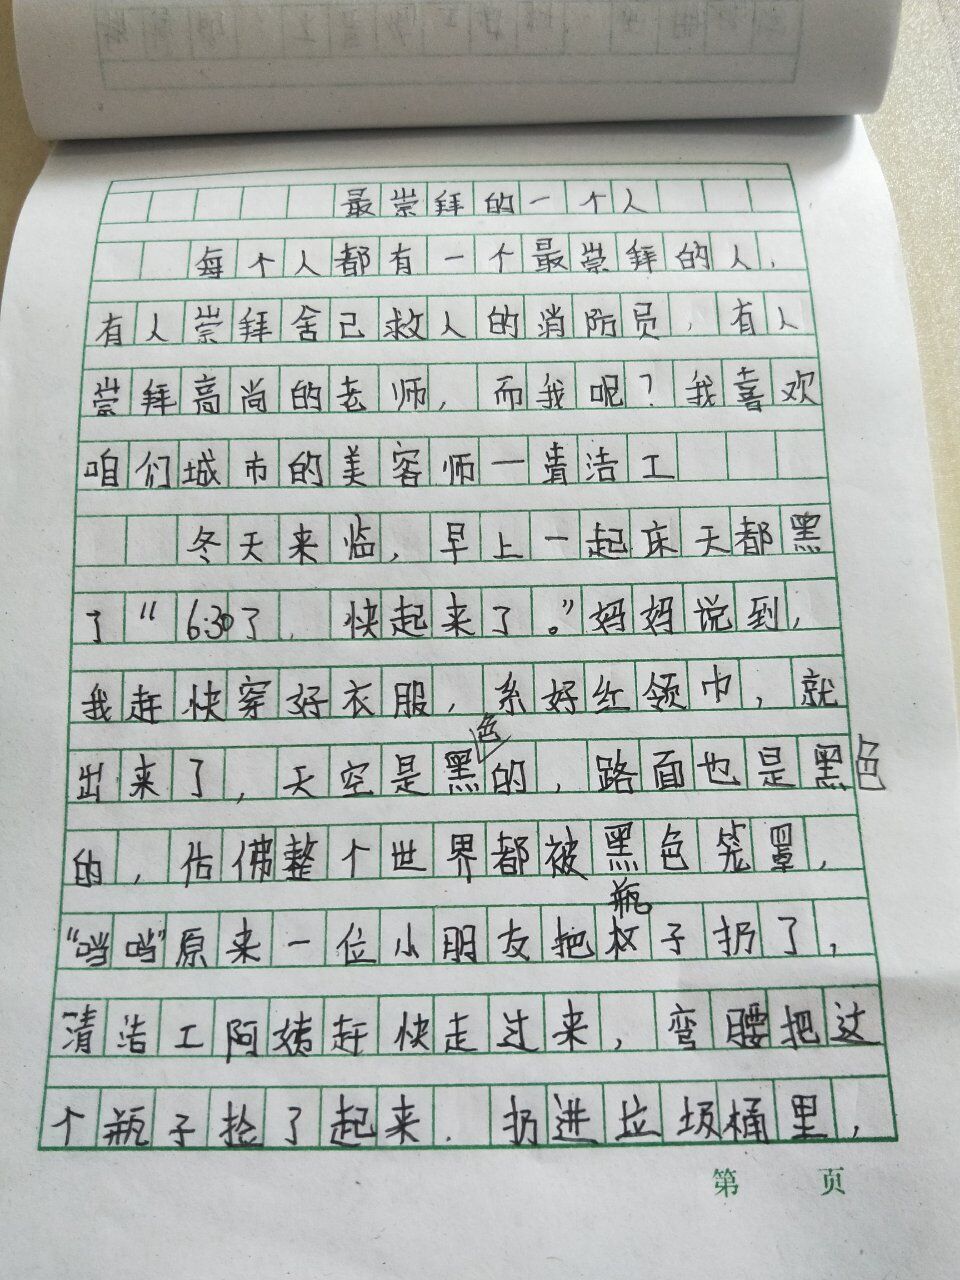 最崇拜的一个人
每个人都有一个最崇拜的人，
有人崇拜舍己救人的消防员，有人
崇拜高尚的老师，而我呢？我喜欢
咱们城市的美容师一清洁工
冬天来临，早上一起床天都黑
了“6:30了，快起来了。”妈妈说到，
我赶快穿好衣服，系好红领巾，就
出来了，天空是黑色的，路面也是黑色
的，估佛整个世界都被黑色笼罩，
“当当”原来一位小朋友把瓶子扔了，
清洁工阿姨赶快走过来，弯腰把这
个瓶子捡了起来．扔进垃圾桶里，
第 页